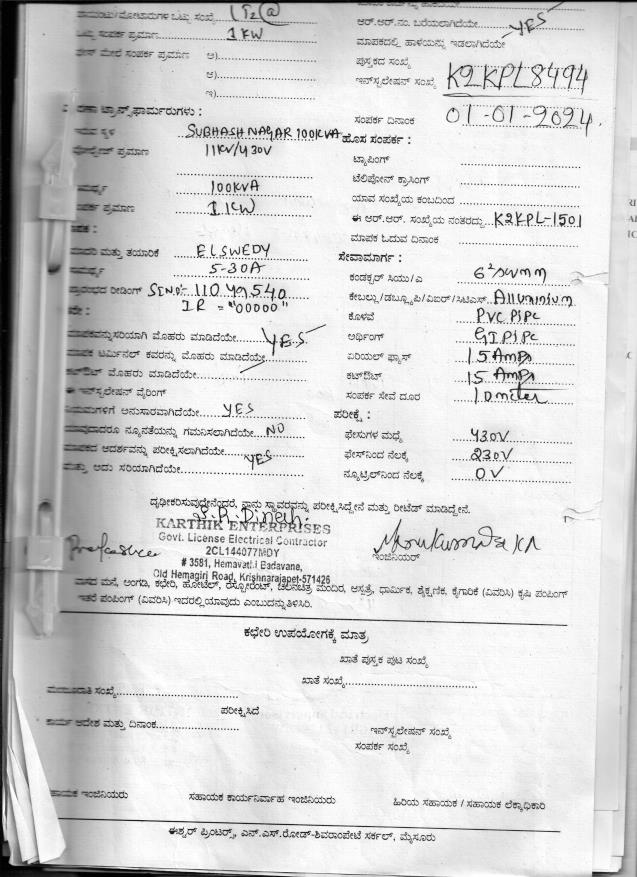 ಒಟ್ಟು ಸಂಖ್ಯೆ LT2(a)
ಒಟ್ಟು ಸಂಪರ್ಕ ಪ್ರಮಾಣ 1 KW
ಮೇಲೆ ಸಂಪರ್ಕ ಪ್ರಮಾಣ ಅ)
ಆ)
ಇ)
ಆರ್.ಆರ್.ನಂ. ಬರೆಯಲಾಗಿದೆಯೇ YES
ಮಾಪಕದಲ್ಲಿ ಹಾಳೆಯನ್ನು ಇಡಲಾಗಿದೆಯೇ
ಪುಸ್ತಕದ ಸಂಖ್ಯೆ
ಇನ್‌ಸ್ಟಲೇಷನ್ ಸಂಖ್ಯೆ K2KPL8494
ಸಂಪರ್ಕ ದಿನಾಂಕ 01-01-2024.
ಟ್ರಾನ್ಸ್‌ಫಾರ್ಮರುಗಳು :
ಸ್ಥಳ SUBHASH NAGAR 100KVA
ಪ್ರಮಾಣ 11KV/430V
100KVA
ಪ್ರಮಾಣ 1 KW
ಮಾದರಿ ಮತ್ತು ತಯಾರಿಕೆ ELSWEDY
5-30A
ಪ್ರಾರಂಭದ ರೀಡಿಂಗ್ SLNO:- 11049540
IR = "00000"
ಮೊಹರು ಮಾಡಿದೆಯೇ YES
ಮಾಪಕ ಟರ್ಮಿನಲ್ ಕವರನ್ನು ಮೊಹರು ಮಾಡಿದೆಯೇ
ಕಟ್‌ಔಟ್ ಮೊಹರು ಮಾಡಿದೆಯೇ
ಈ ಇನ್‌ಸ್ಟಲೇಷನ್ ವೈರಿಂಗ್
ನಿಯಮಗಳಿಗೆ ಅನುಸಾರವಾಗಿದೆಯೇ YES
ಯಾವುದಾದರೂ ನ್ಯೂನತೆಯನ್ನು ಗಮನಿಸಲಾಗಿದೆಯೇ NO
ಮಾಪಕದ ಆದರ್ಶವನ್ನು ಪರೀಕ್ಷಿಸಲಾಗಿದೆಯೇ YES
ಮತ್ತು ಅದು ಸರಿಯಾಗಿದೆಯೇ
ಹೊಸ ಸಂಪರ್ಕ :
ಟ್ಯಾಪಿಂಗ್
ಟೆಲಿಫೋನ್ ಕ್ರಾಸಿಂಗ್
ಯಾವ ಸಂಖ್ಯೆಯ ಕಂಬದಿಂದ
ಈ ಆರ್.ಆರ್. ಸಂಖ್ಯೆಯ ನಂತರದ್ದು K2KPL-1501
ಮಾಪಕ ಓದುವ ದಿನಾಂಕ
ಸೇವಾಮಾರ್ಗ :
ಕಂಡಕ್ಟರ್ ಸಿಯು/ಎ
ಕೇಬಲ್ಲು/ಡಬ್ಲ್ಯೂಪಿ/ವಿಐಆರ್/ಸಿಟಿಎಸ್ Alluminium
ಕೊಳವೆ PVC Pipe
ಅರ್ಥಿಂಗ್ GI Pipe
ಏರಿಯಲ್ ಫ್ಯೂಸ್ 15 Amps
ಕಟ್‌ಔಟ್ 15 Amps
ಸಂಪರ್ಕ ಸೇವೆ ದೂರ 10 meter
ಪರೀಕ್ಷೆ :
ಫೇಸುಗಳ ಮಧ್ಯೆ 430V
ಫೇಸ್‌ನಿಂದ ನೆಲಕ್ಕೆ 230V
ನ್ಯೂಟ್ರಲ್‌ನಿಂದ ನೆಲಕ್ಕೆ 0V
ದೃಢೀಕರಿಸುವುದೇನೆಂದರೆ, ನಾನು ಸ್ಥಾವರವನ್ನು ಪರೀಕ್ಷಿಸಿದ್ದೇನೆ ಮತ್ತು ರೀಟೆಡ್ ಮಾಡಿದ್ದೇನೆ.
KARTHIK ENTERPRISES
Govt. License Electrical Contractor
2CL144077MDY
# 3581, Hemavathi Badavane,
Old Hemagiri Road, Krishnarajapet-571426
ಇಂಜಿನಿಯರ್
ವಾಸದ ಮನೆ, ಅಂಗಡಿ, ಕಛೇರಿ, ಹೋಟೆಲ್, ರೆಸ್ಟೋರೆಂಟ್, ಚಲನಚಿತ್ರ ಮಂದಿರ, ಆಸ್ಪತ್ರೆ, ಧಾರ್ಮಿಕ, ಶೈಕ್ಷಣಿಕ, ಕೈಗಾರಿಕೆ (ವಿವರಿಸಿ) ಕೃಷಿ ಪಂಪಿಂಗ್
ಇತರೆ ಪಂಪಿಂಗ್ (ವಿವರಿಸಿ) ಇದರಲ್ಲಿ ಯಾವುದು ಎಂಬುದನ್ನು ತಿಳಿಸಿರಿ.
ಕಛೇರಿ ಉಪಯೋಗಕ್ಕೆ ಮಾತ್ರ
ಖಾತೆ ಪುಸ್ತಕ ಪುಟ ಸಂಖ್ಯೆ
ಖಾತೆ ಸಂಖ್ಯೆ
ಮಂಜೂರಾತಿ ಸಂಖ್ಯೆ
ಪರೀಕ್ಷಿಸಿದೆ
ಕಾರ್ಯ ಆದೇಶ ಮತ್ತು ದಿನಾಂಕ
ಇನ್‌ಸ್ಟಲೇಷನ್ ಸಂಖ್ಯೆ
ಸಂಪರ್ಕ ಸಂಖ್ಯೆ
ಸಹಾಯಕ ಇಂಜಿನಿಯರು ಸಹಾಯಕ ಕಾರ್ಯನಿರ್ವಾಹ ಇಂಜಿನಿಯರು ಹಿರಿಯ ಸಹಾಯಕ / ಸಹಾಯಕ ಲೆಕ್ಕಾಧಿಕಾರಿ
ಈಶ್ವರ್ ಪ್ರಿಂಟರ್ಸ್, ಎನ್.ಎಸ್.ರೋಡ್-ಶಿವರಾಂಪೇಟೆ ಸರ್ಕಲ್, ಮೈಸೂರು